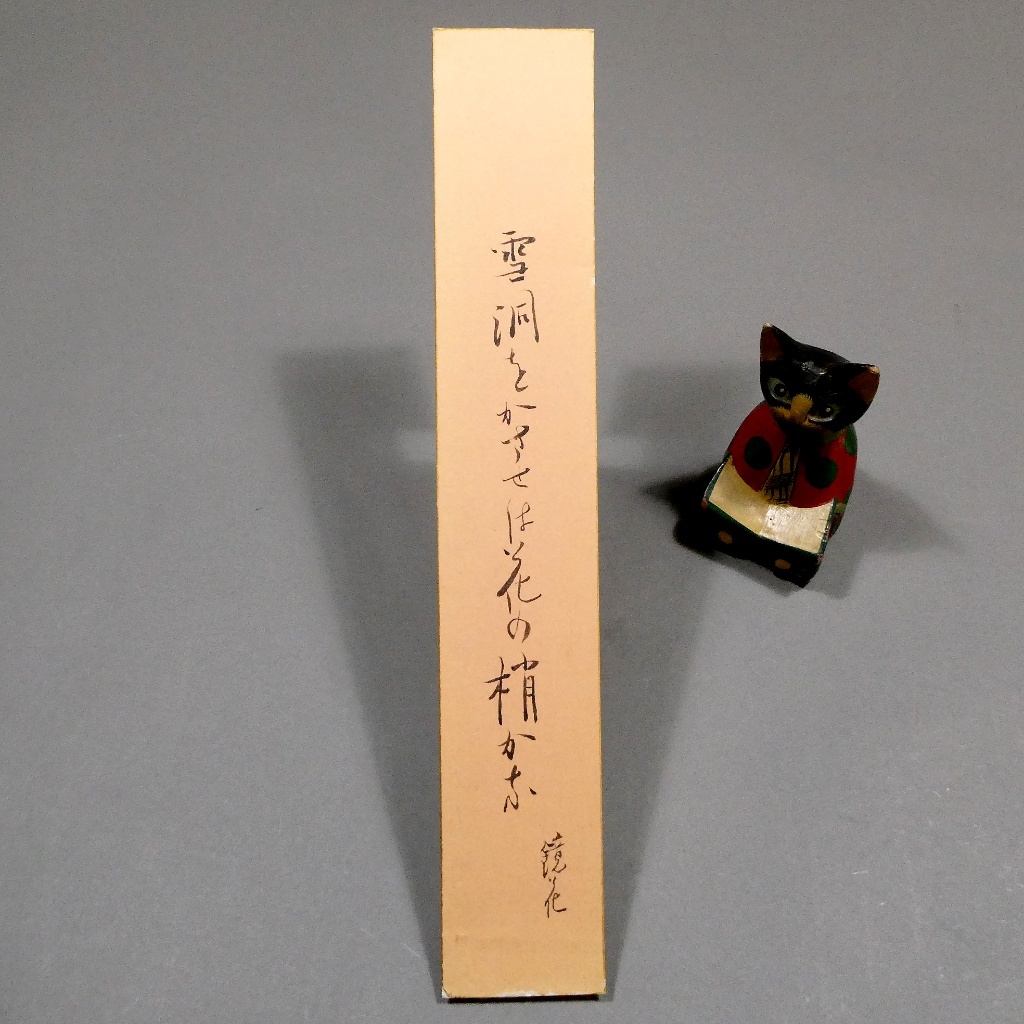 雪洞をかさせは花の梢かな
鏡花